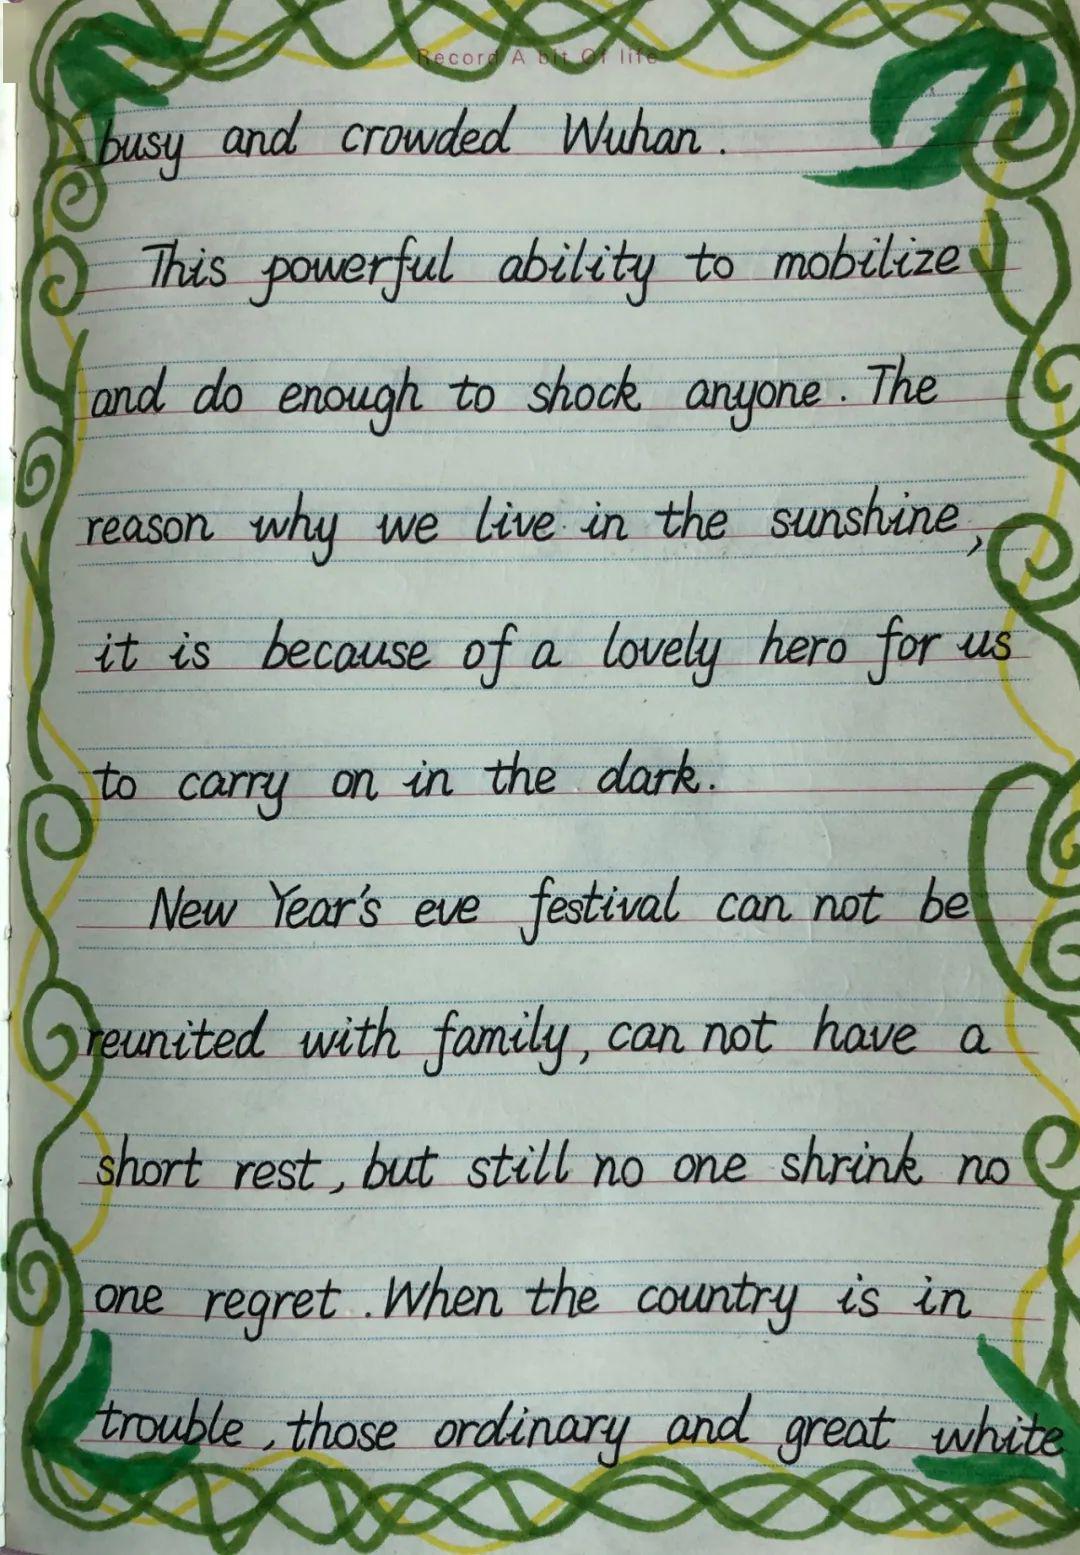 Record A bit Of life
busy and crowded Wuhan.
This powerful ability to mobilize
and do enough to shock anyone. The
reason why we live in the sunshine,
it is because of a lovely hero for us
to carry on in the dark.
New Year's eve festival can not be
reunited with family, can not have a
short rest, but still no one shrink no
one regret. When the country is in
trouble, those ordinary and great white